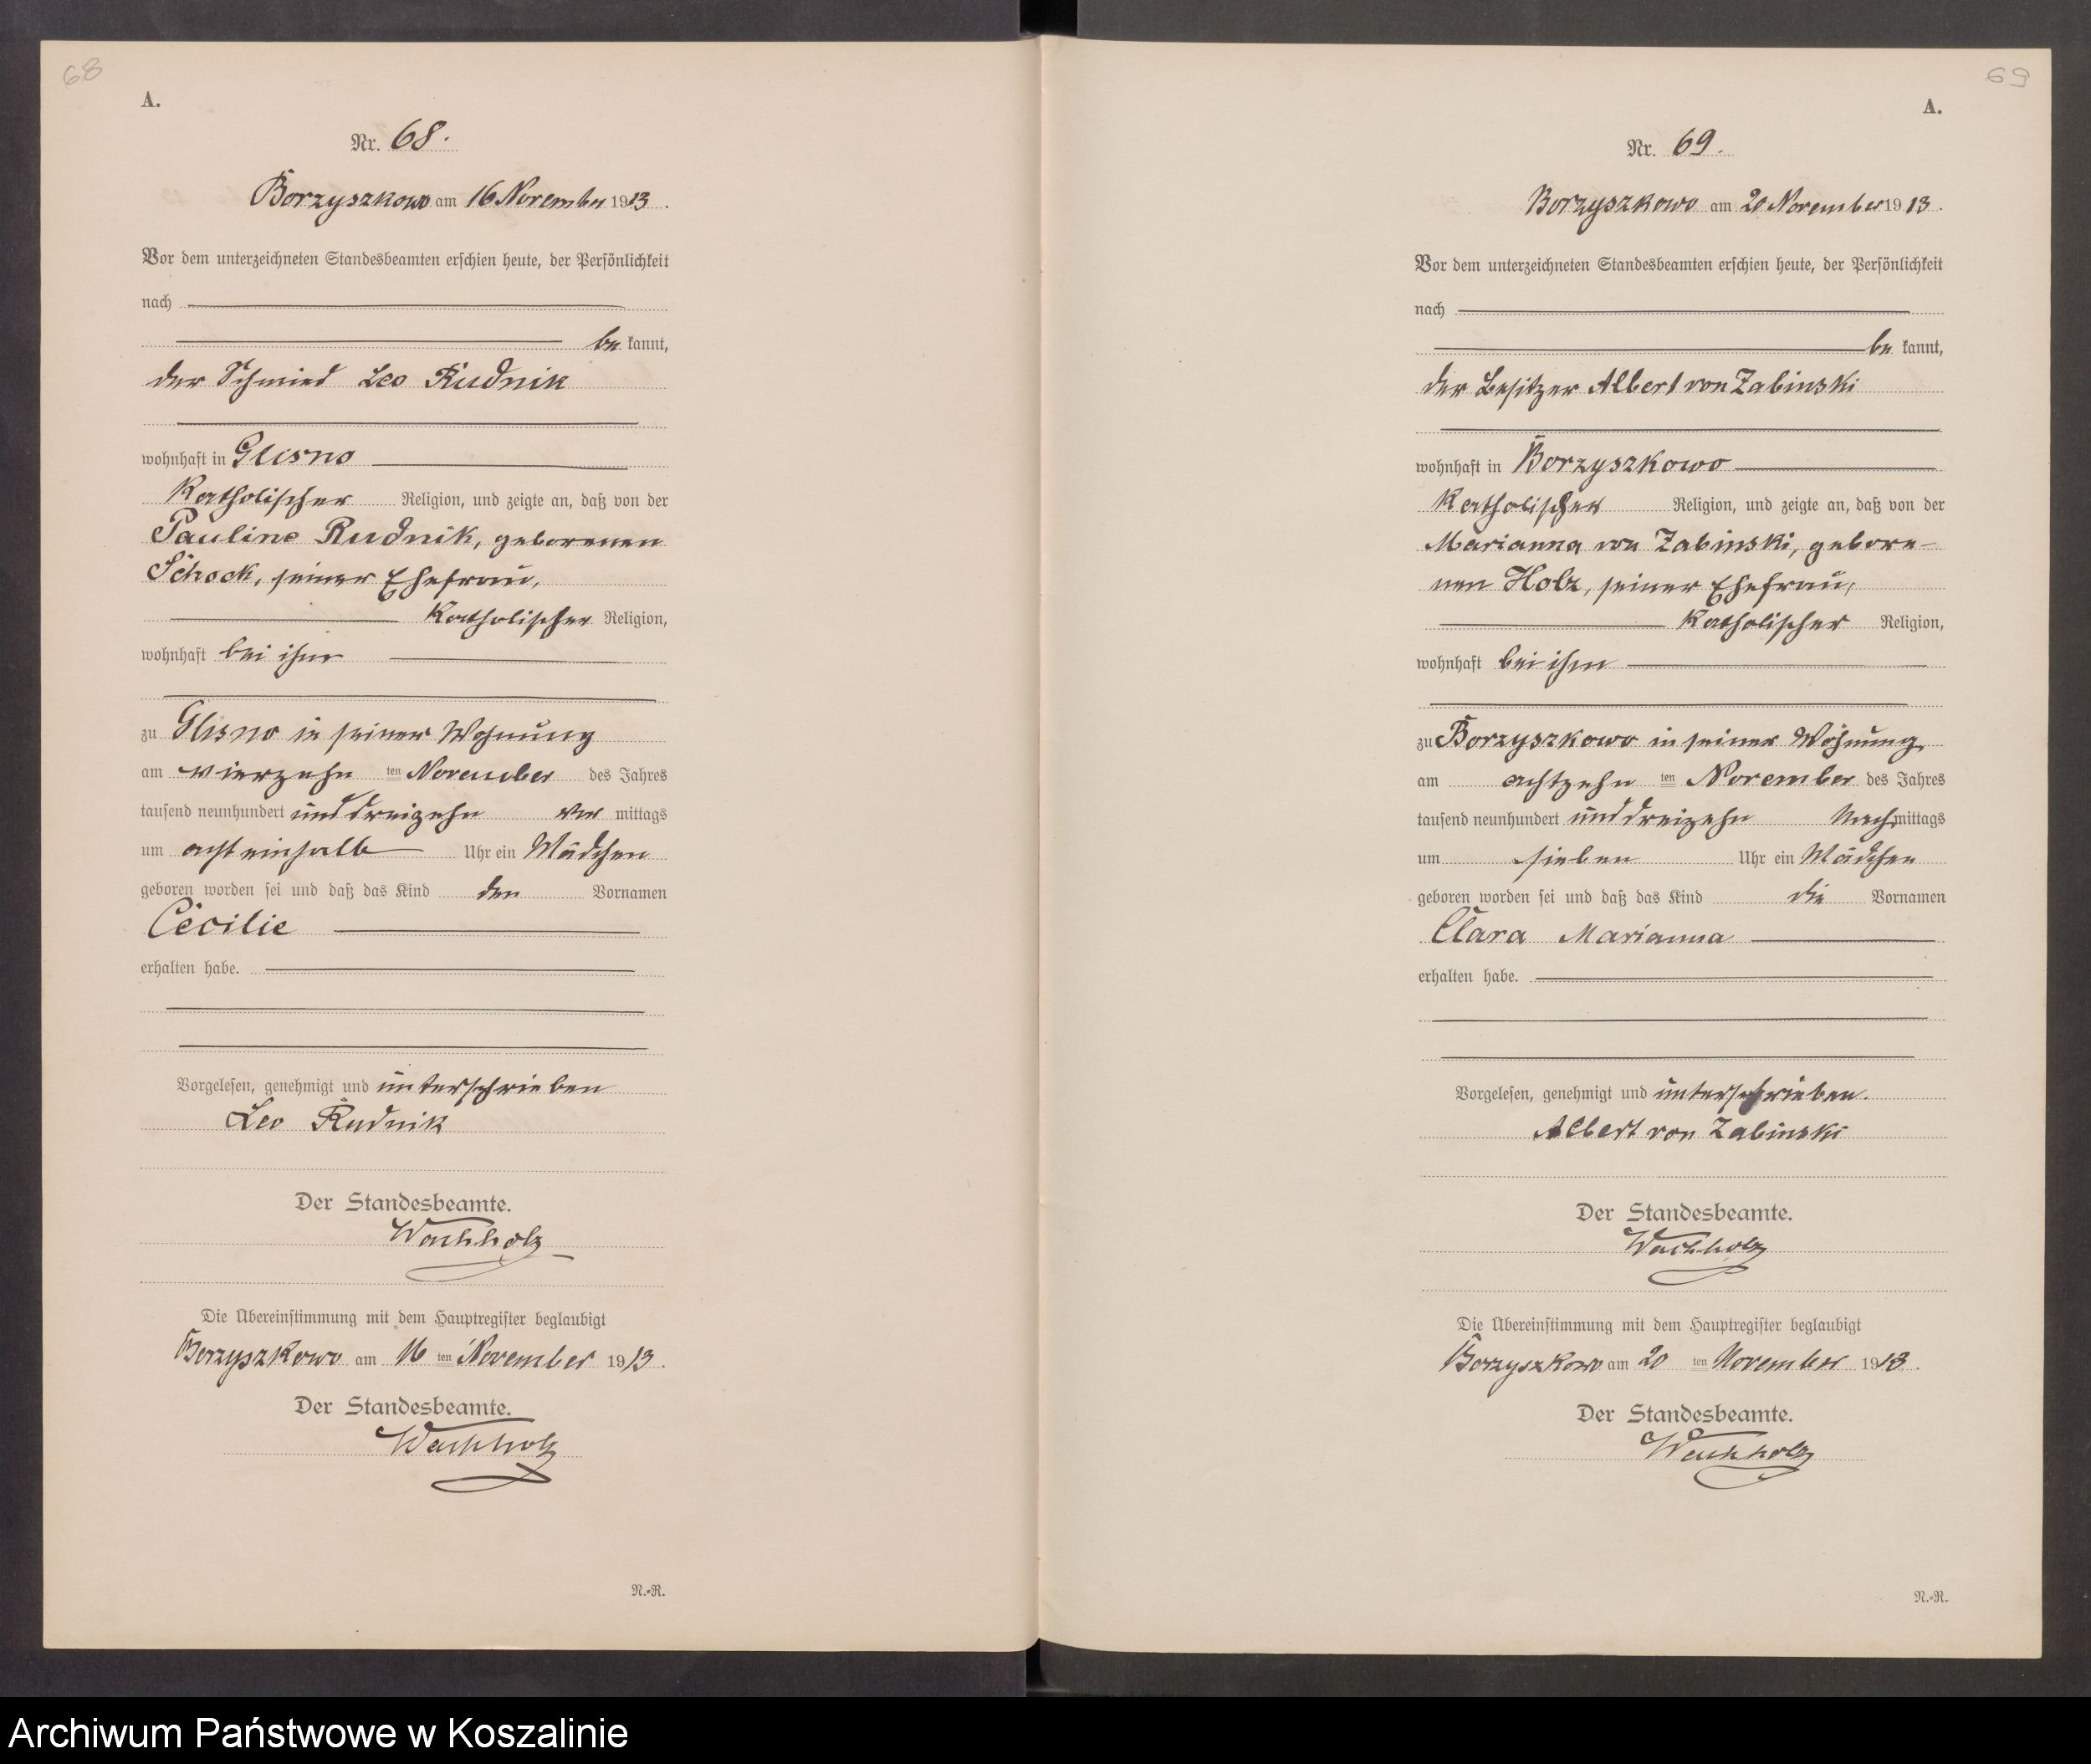 68
A.
Nr. 68.
Borzyszkowo am 16 November 1913.
Vor dem unterzeichneten Standesbeamten erschien heute, der Persönlichkeit
nach
be kannt,
der Schmied Leo Rudnik
wohnhaft in Glisno
katholischer Religion, und zeigte an, daß von der
Pauline Rudnik, geborenen
Schock, seiner Ehefrau,
katholischer Religion,
wohnhaft bei ihm
zu Glisno in seiner Wohnung
am vierzehn ten November des Jahres
tausend neunhundert und dreizehn vor mittags
um acht einhalb Uhr ein Mädchen
geboren worden sei und daß das Kind den Vornamen
Cecilie
erhalten habe.
Vorgelesen, genehmigt und unterschrieben
Leo Rudnik
Der Standesbeamte.
Wachholz
Die Übereinstimmung mit dem Hauptregister beglaubigt
Borzyszkowo am 16 ten November 1913.
Der Standesbeamte.
Wachholz
N.-R.
69
A.
Nr. 69.
Borzyszkowo am 20 November 1913.
Vor dem unterzeichneten Standesbeamten erschien heute, der Persönlichkeit
nach
be kannt,
der Besitzer Albert von Zabinski
wohnhaft in Borzyszkowo
katholischer Religion, und zeigte an, daß von der
Marianna von Zabinski, gebore-
nen Holz, seiner Ehefrau,
katholischer Religion,
wohnhaft bei ihm
zu Borzyszkowo in seiner Wohnung
am achtzehn ten November des Jahres
tausend neunhundert und dreizehn Nach mittags
um sieben Uhr ein Mädchen
geboren worden sei und daß das Kind die Vornamen
Clara Marianna
erhalten habe.
Vorgelesen, genehmigt und unterschrieben.
Albert von Zabinski
Der Standesbeamte.
Wachholz
Die Übereinstimmung mit dem Hauptregister beglaubigt
Borzyszkowo am 20 ten November 1913.
Der Standesbeamte.
Wachholz
N.-R.
Archiwum Państwowe w Koszalinie